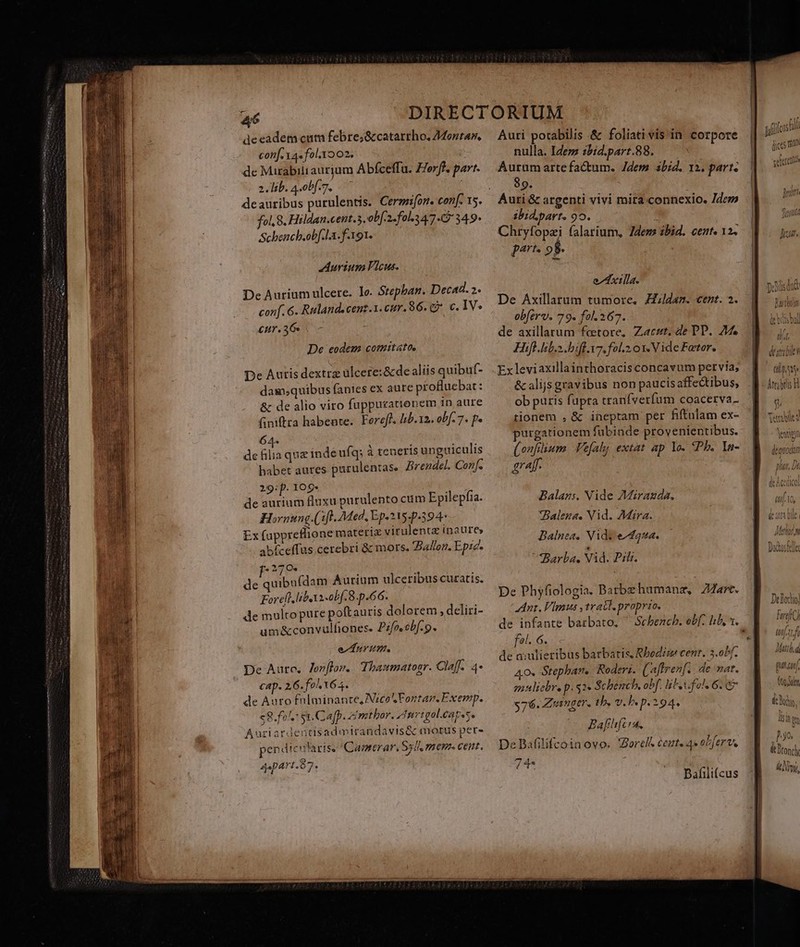 46 DIRECTORIUM
de eadem cum febre, &catarrho. Montan.
conſ. 14. fol. 1002.
de Mirabili aurium Abſceſſu. Horſt. part.
2. lib. 4. obſ. 7.
de auribus purulentis. Cermiſon. conſ. 15.
fol. 8. Hildan. cent. 3. obſ. 2. fol. 347. & 349.
Schench. obſ. l. 1. f. 191.
Aurium Vlcus.
De Aurium ulcere. Io. Stephan. Decad. 2.
conſ. 6. Ruland. cent. 1. cur. 86. & c. IV.
cur. 36.
De eodem comitato.
De Auris dextræ ulcere: & de aliis quibuſ-
dam, quibus ſanies ex aure profluebat:
& de alio viro ſuppurationem in aure
ſiniſtra habente. Foreſt. lib. 12. obſ. 7. p.
64.
de filia quæ inde uſq; à teneris unguiculis
habet aures purulentas. Brendel. Conſ.
29: p. 109.
de aurium fluxu purulento cum Epilepſia.
Hornung. Ciſt. Med. Ep. 215. p. 394.
Ex ſuppreſſione materiæ virulentæ in aure,
abſceſſus cerebri & mors. Ballon. Epid.
p. 270.
de quibuſdam Aurium ulceribus curatis.
Foreſt. lib. 12. obſ. 8. p. 66.
de multo pure poſt auris dolorem, deliri-
um & convulſiones. Piſo. obſ. 9.
Aurum.
De Auro. Ionſton. Thaumatogr. Claſſ. 4.
cap. 26. fol. 164.
de Auro fulminante, Nicol. Fontan. Exemp.
58. fol. 51. Caſp. à mthor. Aurigol. cap. 5.
Auri ardentis admirandavis & motus per-
pendicularis. Camerar. Syll. mem. cent.
4. part. 87.
Auri potabilis & foliati vis in corpore
nulla. Idem ibid. part. 88.
Aurum arte factum. Idem ibid. 12. part.
89.
Auri & argenti vivi mira connexio. Idem
ibid. part. 90.
Chryſopæi ſalarium, Idem ibid. cent. 12.
part. 98.
Axilla.
De Axillarum tumore. Hildan. cent. 2.
obſerv. 79. fol. 267.
de axillarum fœtore. Zacut. de PP. M.
Hiſt. lib. 2. hiſt. 17. fol. 201. Vide Fœtor.
Ex levi axilla in thoracis concavum pervia,
& alijs gravibus non paucis affectibus,
ob puris ſupra tranſverſum coacerva-
tionem, & ineptam per fiſtulam ex-
purgationem ſubinde provenientibus.
Conſilium Veſalij extat ap Io. Ph. In-
graſſ.
Balans. Vide Miranda.
Balena. Vid. Mira.
Balnea. Vid. Aqua.
Barba. Vid. Pili.
De Phyſiologia. Barbæ humanæ, Marc.
Ant. Vlmus, tract. proprio.
de infante barbato. Schench. obſ. lib. 1.
fol. 6.
de mulieribus barbatis. Rhodius cent. 3. obſ.
40. Stephan. Roderi. Caſtrenſ. de nat.
muliebr. p. 52. Schench. obſ. lib. 1. fol. 6. &
576. Zuinger. th. v. h. p. 294.
Baſiliſcus.
De Baſiliſco in ovo. Borell. cent. 4. obſerv.
74.
Baſiliſcus